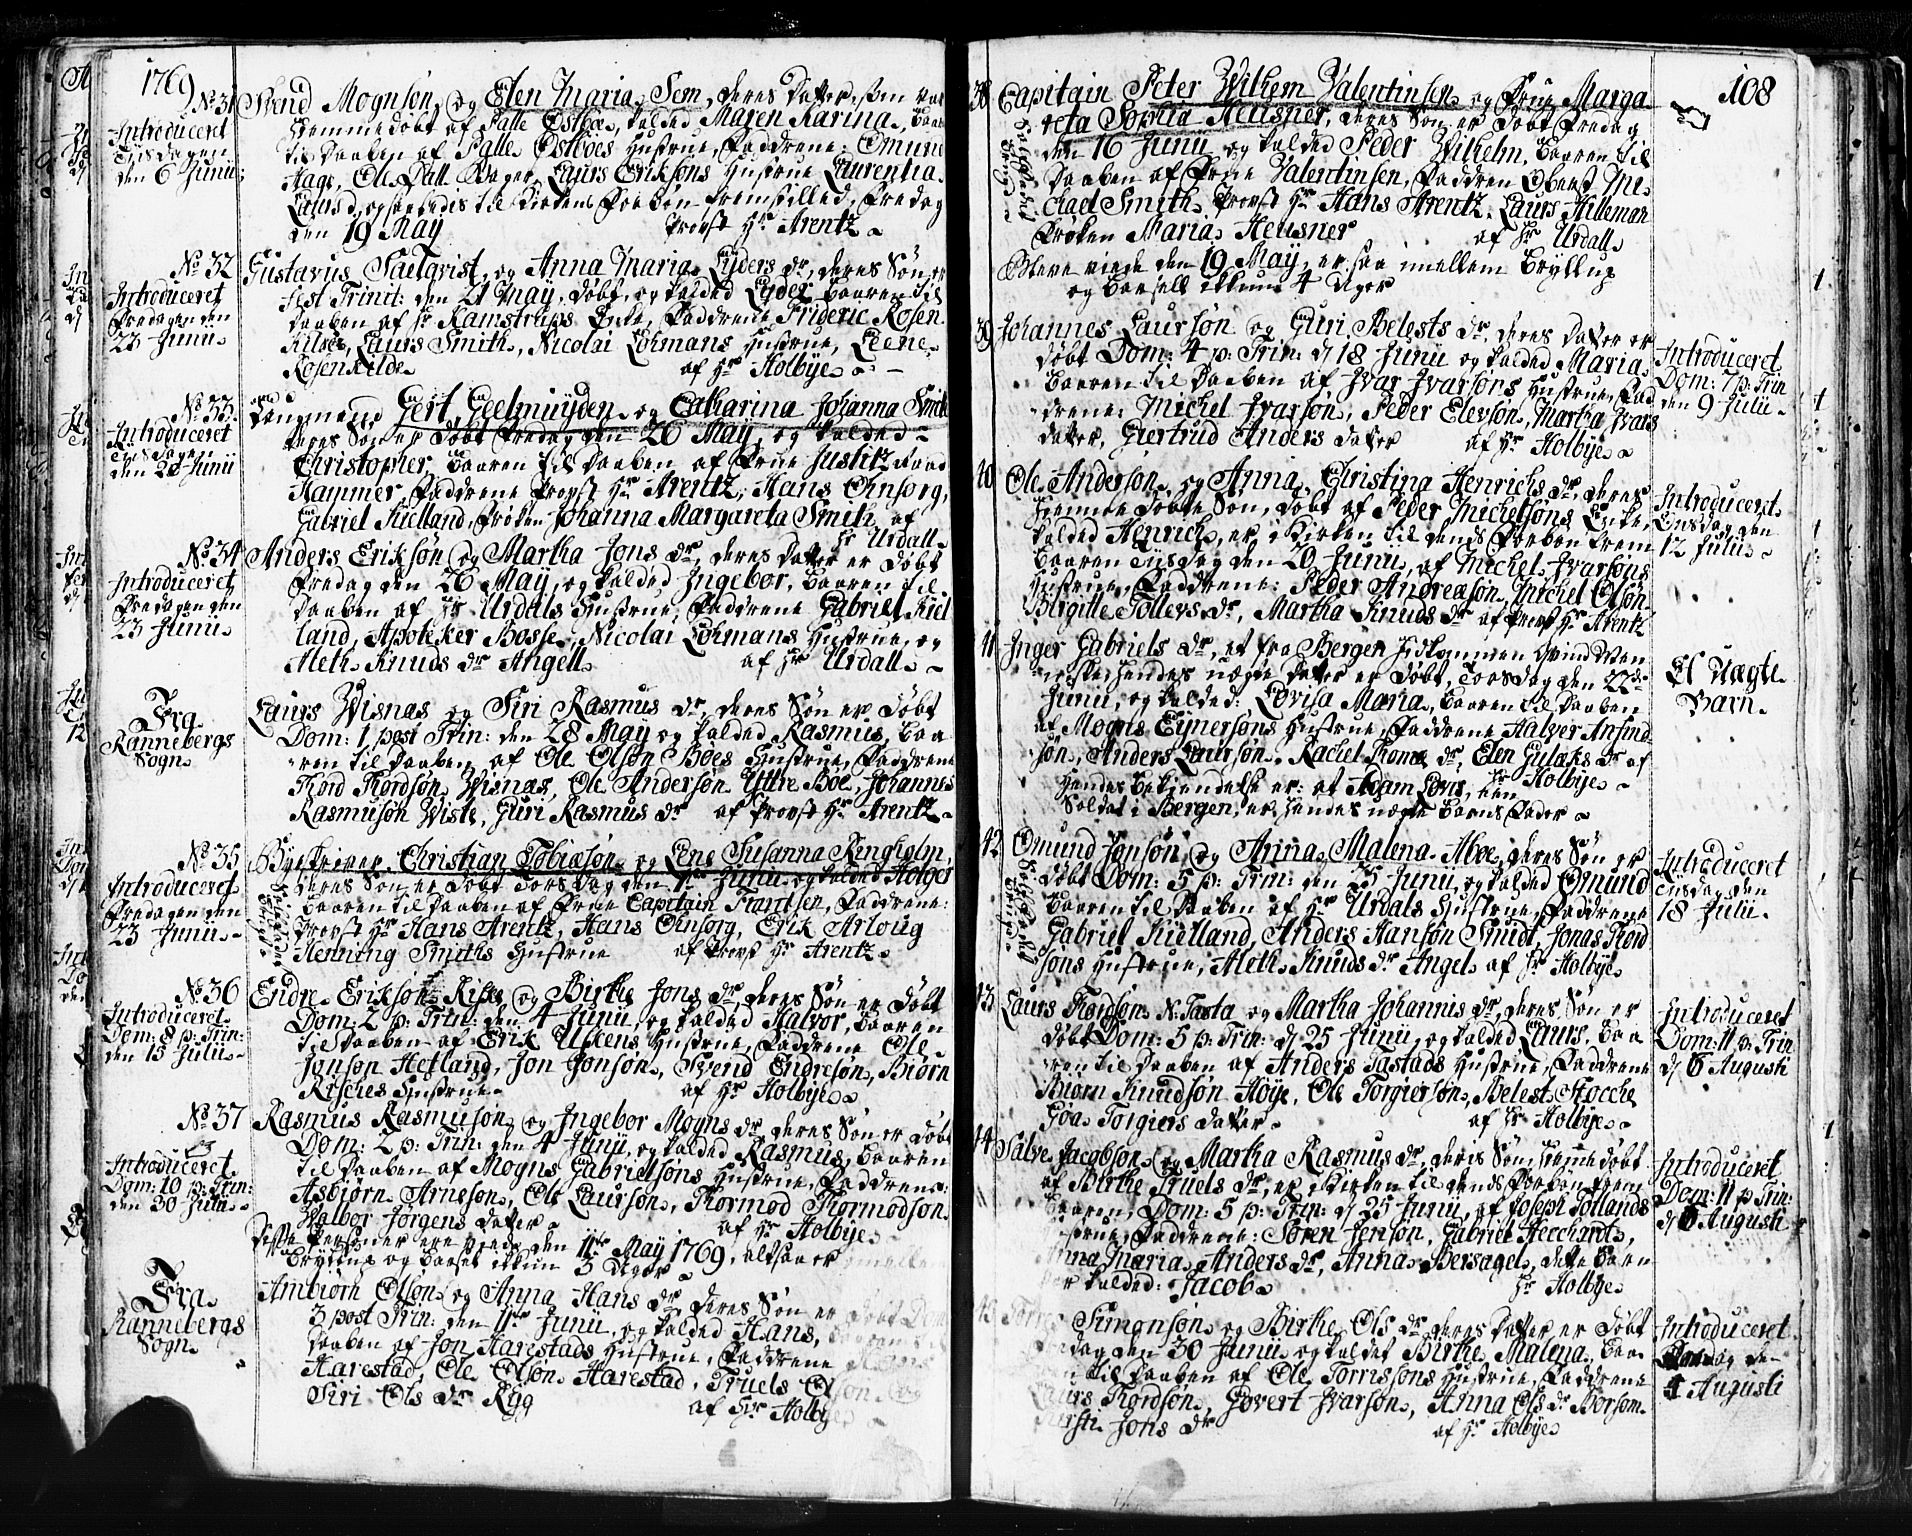 1769
No. 31
Introduceret
Tiisdagen
den 6 Junii
Svend Mognsøn og Elen Maria Sem, deres dater, som var
hiemmedøbt af Palle Østboe, kaldet Maren Karina, baaren
til daaben af Palle Østboes Hustrue, Faddrene: Omund
Hage, Ole Pall Bager, Laurs Eriksøns Hustrue Laurentia
den 19 May Provst Hr Arentz
No. 32
Introduceret
Fredagen den
23 Junii
Gustavus Saelqvist, og Anna Maria Lyders dr, deres Søn er
Fest Trinit: den 21 May, døbt, og kaldet Lyder, baaren til
daaben af Hr Kamstrups Enke, Faddrene Frideric Rosen
kilde, Laurs Smith, Nicolai Lohmans Hustrue, Leene
Rosenkilde af Hr Holbye
No. 33
Introduceret
Tiisdagen
den 20 Junii
Laugmand Gert Geelmuyden og Catharina Johanna Smith
deres Søn er døbt Fredag den 26 May, og kaldet
Christopher, baaren til daaben af Frue Justitz Raad
Hammer, Faddrene Provst Hr Arentz, Hans Ohnsorg,
Gabriel Kielland, Frøken Johanna Margareta Smith af
Hr Urdall
No. 34
Introduceret
Fredagen den
23 Junii
Anders Eriksøn og Martha Jons dr, deres dater er døbt
Fredag den 26 May, og kaldet Ingebor, baaren til
daaben af Hr Urdals Hustrue, Faddrene Gabriel Kiel
land, Apoteker Bosse, Nicolai Lohmans Hustrue, og
Aleth Knuds dr Angell af Hr Urdall
Fra
Rannebergs
Sogn
Laurs Wisnæs og Siri Rasmus dr, deres Søn er døbt
Dom: 1 post Trin: den 28 May og kaldet Rasmus, baa
ren til daaben af Ole Olsøn Boes Hustrue, Faddrene
Thord Thordsøn Wisnæs, Ole Andersøn Yttre Boe, Johannes
Rasmusøn Wiste, Guri Rasmus dr af Provst Hr Arentz
No. 35
Introduceret
Fredagen den
23 Junii
Byeskriver Christian Tobiæsøn og Lene Susanna Ringholm,
deres Søn er døbt Torsdag den 1ste Junii og kaldet Holger
baaren til daaben af Frue Capitain Frantsen, Faddrene:
Provst Hr Hans Arentz, Hans Ohnsorg, Erik Arloug
Henning Smiths Hustrue af Provst Hr Arentz
No. 36
Introduceret
Dom: 8 p: Trin:
den 15 Julii
Endre Eriksøn Riske, og Birthe Jons dr, deres Søn er døbt
Dom: 2 p: Trin: den 4 Junii, og kaldet Halvor, baaren
til daaben af Erik Ukens Hustrue, Faddrene Ole
Jonsøn Hetland, Jon Jonsøn, Svend Endresøn, Biørn
Risches Hustrue af Hr Holbye
No. 37
Introduceret
Dom: 10 p: Trin:
den 30 Julii
Rasmus Rasmusøn og Ingebor Mogns dr deres Søn er døbt
Dom: 2 p: Trin: den 4 Junii, og kaldet Rasmus, baaren
til daaben af Mogns Gabrielsøns Hustrue, Faddrene:
Asbiørn Arnesøn, Ole Laursøn, Thormod Thormodsøn
Walbor Jørgens dater af Hr Holbye
Disse Personer ere viede den 11te May 1769, altsaa er imellem
Bryllup og barsel ikkun 3 Uger
Fra
Rannebergs
Sogn
Ambiørn Olsøn og Anna Hans dr deres Søn er døbt Dom
3 post Trin: den 11te Junii, og kaldet Hans, baaren til
daaben af Jon Harestads Hustrue, Faddrene
Harestad, Ole Olsøn Harestad, Truels Olsøn og
Siri Ols dr Rygg af Hr Holbye
108
38 Capitain Peter Wilhem Valentinsen og Frue Marga
reta Sophia Heusner, deres Søn er døbt Fredag
den 16 Junii og kaldet Peder Wilhelm, baaren til
daaben af Frue Valentinsen, Faddren Oberst Mi
chael Smith, Provst Hr Hans Arentz, Laurs Hilleman
Frøken Maria Heusner af Hr Urdall
Bleve viede den 19 May, er saa imellem Bryllup
og Barsell ikkun 4 Uger
39 Johannes Laursøn og Guri Belests dr, deres dater er
døbt Dom: 4 p: Trin: d 18 Junii og kaldet Maria,
baaren til daaben af Ivar Ivarsøns Hustrue, Fad
drene: Michel Ivarsøn, Peder Elevsøn, Martha Ivars
dater, Giertrud Anders dater af Hr Holbye
Introduceret
Dom: 7 p: Trin
den 9 Julii
40 Ole Andersøn og Anna Christina Henrichs dr, deres
hiemmedøbte Søn, døbt af Peder Michelsøns Enke,
kaldet Henrich, er i Kirken til dends Forbøn frem
baaren Tiisdag den 20 Junii, af Michel Ivarsøns
Hustrue, Faddrene: Peder Andreasøn, Michel Olsøn,
Birgitte Tollevs dr, Martha Knuds dr af Provst Hr Arentz
Introduceret
Onsdag den
12 Julii
41 Inger Gabriels dr, et fra Bergen hidkommen Qvind Men
niske, hendes uægte dater er døbt, Torsdag den 22de
Junii, og kaldet: Lovisa Maria, baaren til daaben
af Mogns Ejnersøns Hustrue, Faddrene Halver Ansind
søn, Anders Laursøn, Rachel Thomæ dr, Elen Gulaks dr af
Hr Holbye
Hendes bekiendelse er: at Adam Levis, een
Soldat i Bergen, er hendes uægte barns Fader
Et Uægte
Barn
42 Omund Jonsøn og Anna Malena Aboe, deres Søn er
døbt Dom: 5 p: Trin: den 25 Junii, og kaldet Omund
baaren til daaben af Hr Urdals Hustrue, Faddrene
Gabriel Kielland, Anders Hansøn Smidt, Jonas Thord
søns Hustrue, Aleth Knuds dr Angel af Hr Holbye
Introduceret
Tiisdag den
18 Julii
43 Laurs Thordsøn N: Tasta og Martha Johannis dr, deres Søn er
døbt Dom: 5 p: Trin: d 25 Junii, og kaldet Laurs, baa
ren til daaben af Anders Tastads Hustrue, Faddrene
Biørn Knudsøn Høye, Ole Torgiersøn, Belest Stocche
Goa Torgiers dater af Hr Holbye
Introduceret
Dom: 11 p: Trin
d 6 Augusti
44 Salve Jacobsøn og Martha Rasmus dr, deres Søn, hiemmedøbt
af Birthe Truels dr, er i Kirken til dends Forbøn frem
baaren, Dom: 5 p: Trin: d 25 Junii, af Joseph Tollands
Hustrue, Faddrene: Søren Jensøn, Gabriel Hecchordt,
Anna Maria Anders dr, Anna Bersagel, dette barn
er kaldet: Jacob Hr Holbye
Introduceret
Dom: 11 p Trin:
d 6 Augusti
Simonsøn og Birthe Ols dr deres dater er døbt
dag den 30 Junii og kaldet Birthe Malena, baa
ren til daaben af Ole Torrissøns Hustrue, Faddrene
Laurs Thordsøn, Govert Ivarsøn, Anna Ols dr Borsom
Jons dr af Hr Holbye
Introduceret
4 Augusti